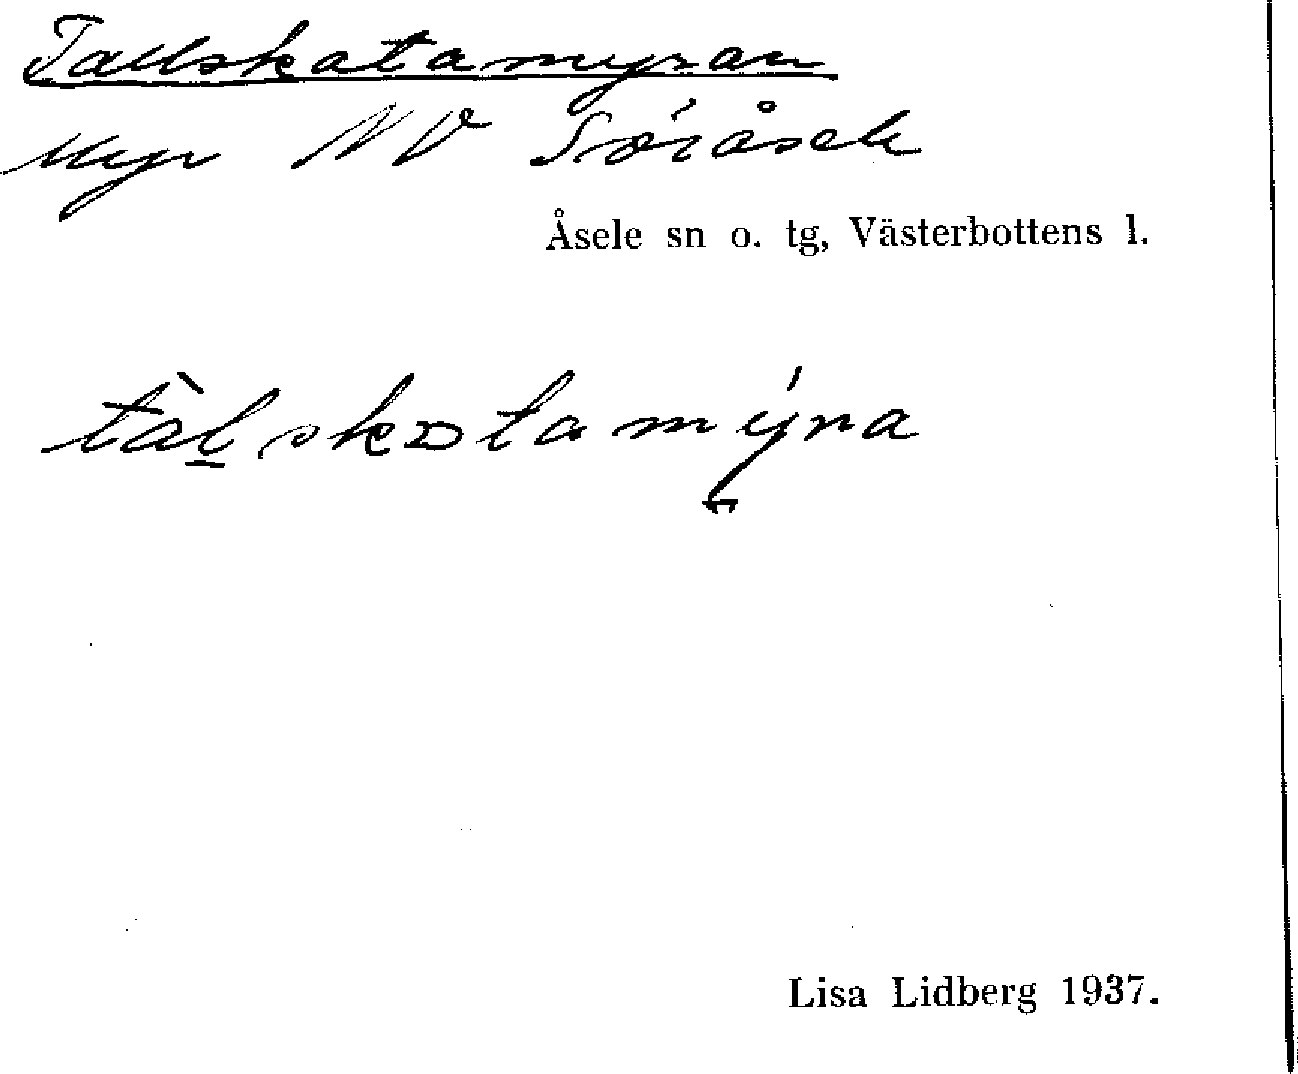 Tallskatamyran
Myr NV Söråsele
Åsele sn o. tg, Västerbottens l.
tàl̠skɒtamýra
Lisa Lidberg 1937.